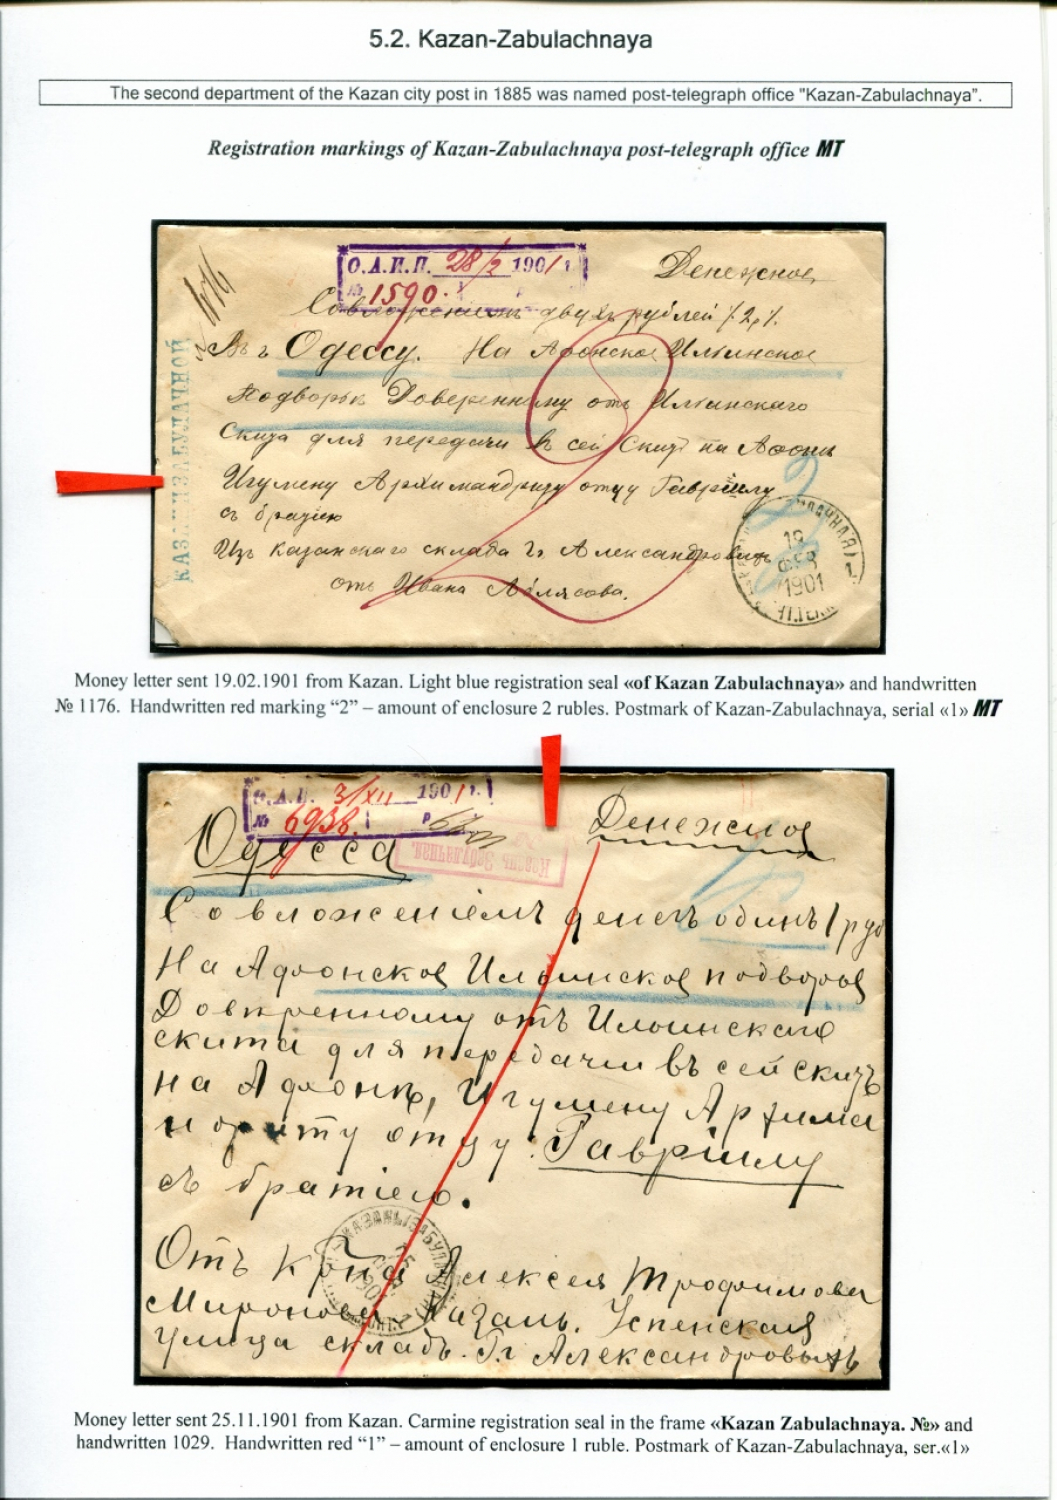 5.2. Kazan-Zabulachnaya
The second department of the Kazan city post in 1885 was named post-telegraph office "Kazan-Zabulachnaya".
Registration markings of Kazan-Zabulachnaya post-telegraph office MT
О.А.И.П. 28/2 1901 г.
№ 1590.
Денежное
Со вложеніемъ двухъ рублей /.2./.
Въ г Одессу. На Афонское Ильинское
Подворье Доверенному отъ Ильинскаго
Скита для передачи въ сей Скитъ на Афонъ
Игумену Архимандриту отцу Гавріилу
съ братіею
Изъ Казанскаго склада Гг Александровыхъ
отъ Ивана
КАЗАНИ ЗАБУЛАЧНОЙ
2
19
ФЕВ
1901
Money letter sent 19.02.1901 from Kazan. Light blue registration seal «of Kazan Zabulachnaya» and handwritten
№ 1176. Handwritten red marking “2” – amount of enclosure 2 rubles. Postmark of Kazan-Zabulachnaya, serial «1» MT
О.А.П. 3/XII 1901 г.
№ 6938.
Казань Забулачная.
Одесса
Денежное
Со вложеніемъ денегъ одинъ 1 руб
На Афонское Ильинское подворье
Доверенному отъ Ильинскаго
скита для передачи въ сей скитъ
на Афонъ, Игумену Архима
ндриту отцу Гавріилу
съ братіею.
Отъ Алексея Трофимова
Миронова Казань. Успенская
улица складъ. Гг Александровыхъ
Money letter sent 25.11.1901 from Kazan. Carmine registration seal in the frame «Kazan Zabulachnaya. №» and
handwritten 1029. Handwritten red “1” – amount of enclosure 1 ruble. Postmark of Kazan-Zabulachnaya, ser.«1»